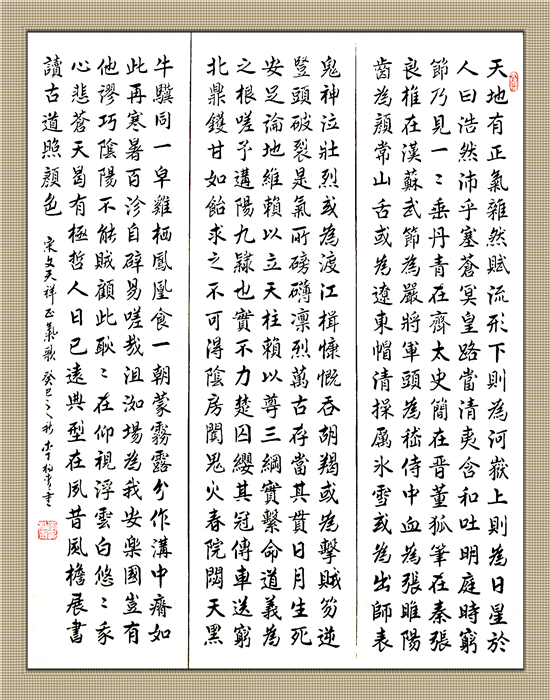 天地有正氣雜然賦流形下則為河嶽上則為日星於
人曰浩然沛乎塞蒼冥皇路當清夷含和吐明庭時窮
節乃見一〻垂丹青在齊太史簡在晋董狐筆在秦張
良椎在漢蘇武節為嚴將軍頭為嵇侍中血為張睢陽
齒為顏常山舌或為遼東帽清操厲冰雪或為出師表
鬼神泣壯烈或為渡江楫慷慨吞胡羯或為擊賊笏逆
豎頭破裂是氣所磅礴凜烈萬古存當其貫日月生死
安足論地維賴以立天柱賴以尊三綱實繫命道義為
之根嗟予遘陽九隸也實不力楚囚纓其冠傳車送窮
北鼎鑊甘如飴求之不可得陰房闃鬼火春院閟天黑
牛驥同一皁雞栖鳳凰食一朝蒙霧露分作溝中瘠如
此再寒暑百沴自辟易嗟哉沮洳場為我安樂國豈有
他謬巧陰陽不能賊顧此耿〻在仰視浮雲白悠〻我
心悲蒼天曷有極哲人日已遠典型在夙昔風檐展書
讀古道照顏色
宋文天祥正氣歌 癸巳之秋 李